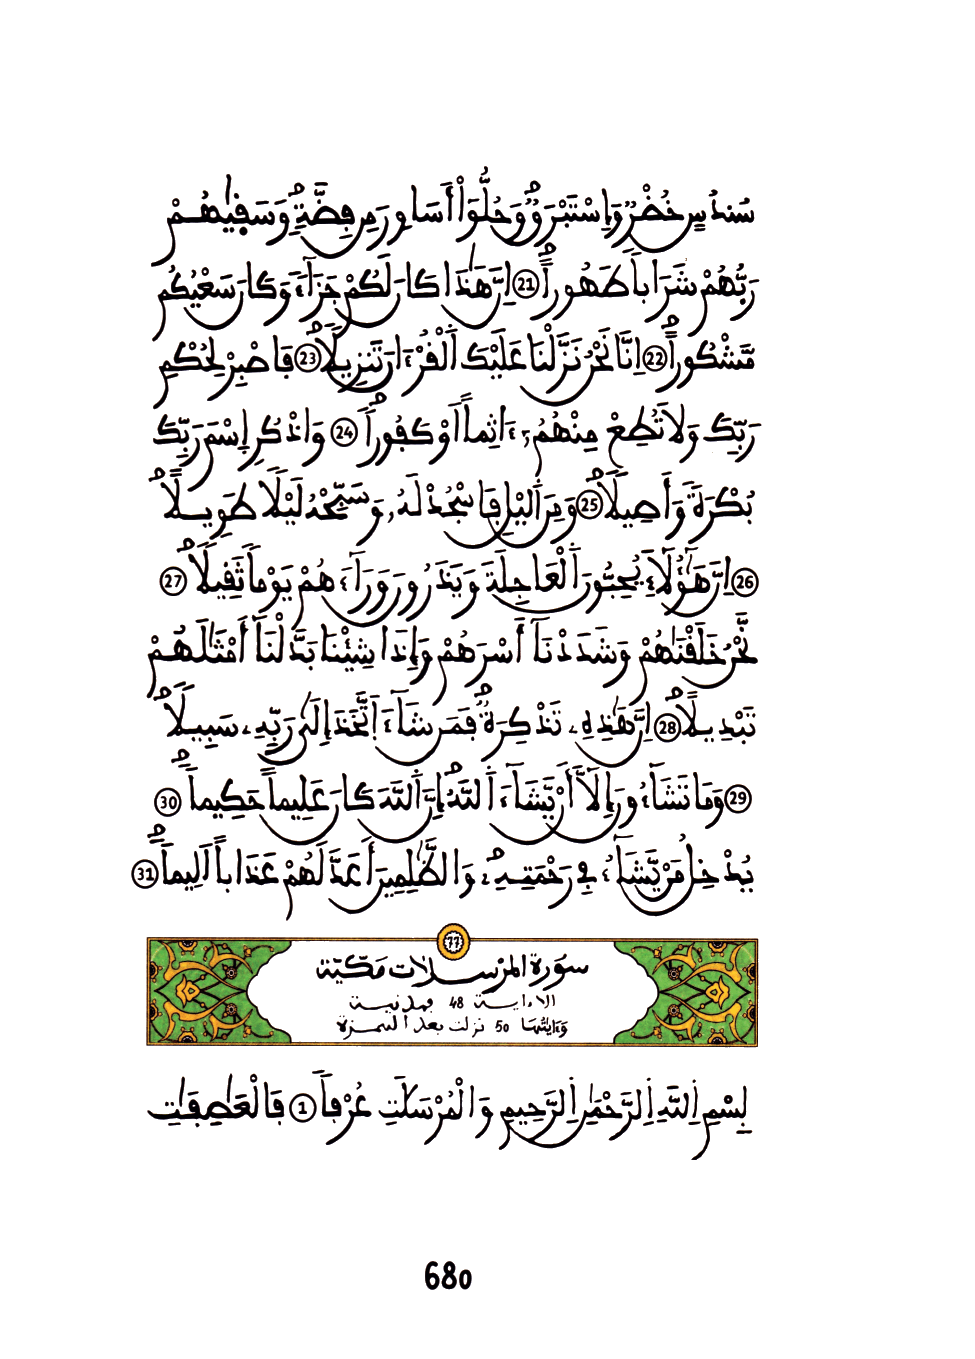 سُندُسٍ خُضْرٌ وَإِسْتَبْرَقٌ وَحُلُّوٓاْ أَسَاوِرَ مِن فِضَّةٍ وَسَقَىٰهُمْ
رَبُّهُمْ شَرَاباً طَهُوراً (21) إِنَّ هَٰذَا كَانَ لَكُمْ جَزَآءً وَكَانَ سَعْيُكُم
مَّشْكُوراً (22) إِنَّا نَحْنُ نَزَّلْنَا عَلَيْكَ ٱلْقُرْءَانَ تَنزِيلًا (23) فَاصْبِرْ لِحُكْمِ
رَبِّكَ وَلَا تُطِعْ مِنْهُمُۥٓ ءَاثِماً أَوْ كَفُوراً (24) وَاذْكُرِ إِسْمَ رَبِّكَ
بُكْرَةً وَأَصِيلًا (25) وَمِنَ ٱليْلِ فَاسْجُدْ لَهُۥ وَسَبِّحْهُ لَيْلًا طَوِيلًا
(26) إِنَّ هَٰٓؤُلَآءِ يُحِبُّونَ ٱلْعَاجِلَةَ وَيَذَرُونَ وَرَآءَهُمْ يَوْماً ثَقِيلًا (27)
نَّحْنُ خَلَقْنَاهُمْ وَشَدَدْنَآ أَسْرَهُمْ وَإِذَا شِيْئْنَا بَدَّلْنَآ أَمْثَٰلَهُمْ
تَبْدِيلًا (28) إِنَّ هَٰذِهِۦ تَذْكِرَةٌ فَمَن شَآءَ اَتَّخَذَ إِلَىٰ رَبِّهِۦ سَبِيلًا
(29) وَمَا تَشَآءُونَ إِلَّآ أَنْ يَّشَآءَ ٱللَّهُ إِنَّ ٱللَّهَ كَانَ عَلِيماً حَكِيماً (30)
يُدْخِلُ مَنْ يَّشَآءُ فِي رَحْمَتِهِۦ وَالظَّٰلِمِينَ أَعَدَّ لَهُمْ عَذَاباً أَلِيماً (31)
77
سورة المرسلات مكيّة
الا ءاية 48 فمدنية
وءايتها 50 نزلت بعد الهمزة
بِسْمِ ٱللَّهِ ٱلرَّحْمَٰنِ ٱلرَّحِيمِ وَالْمُرْسَلَٰتِ عُرْفاً (1) فَالْعَٰصِفَٰتِ
680